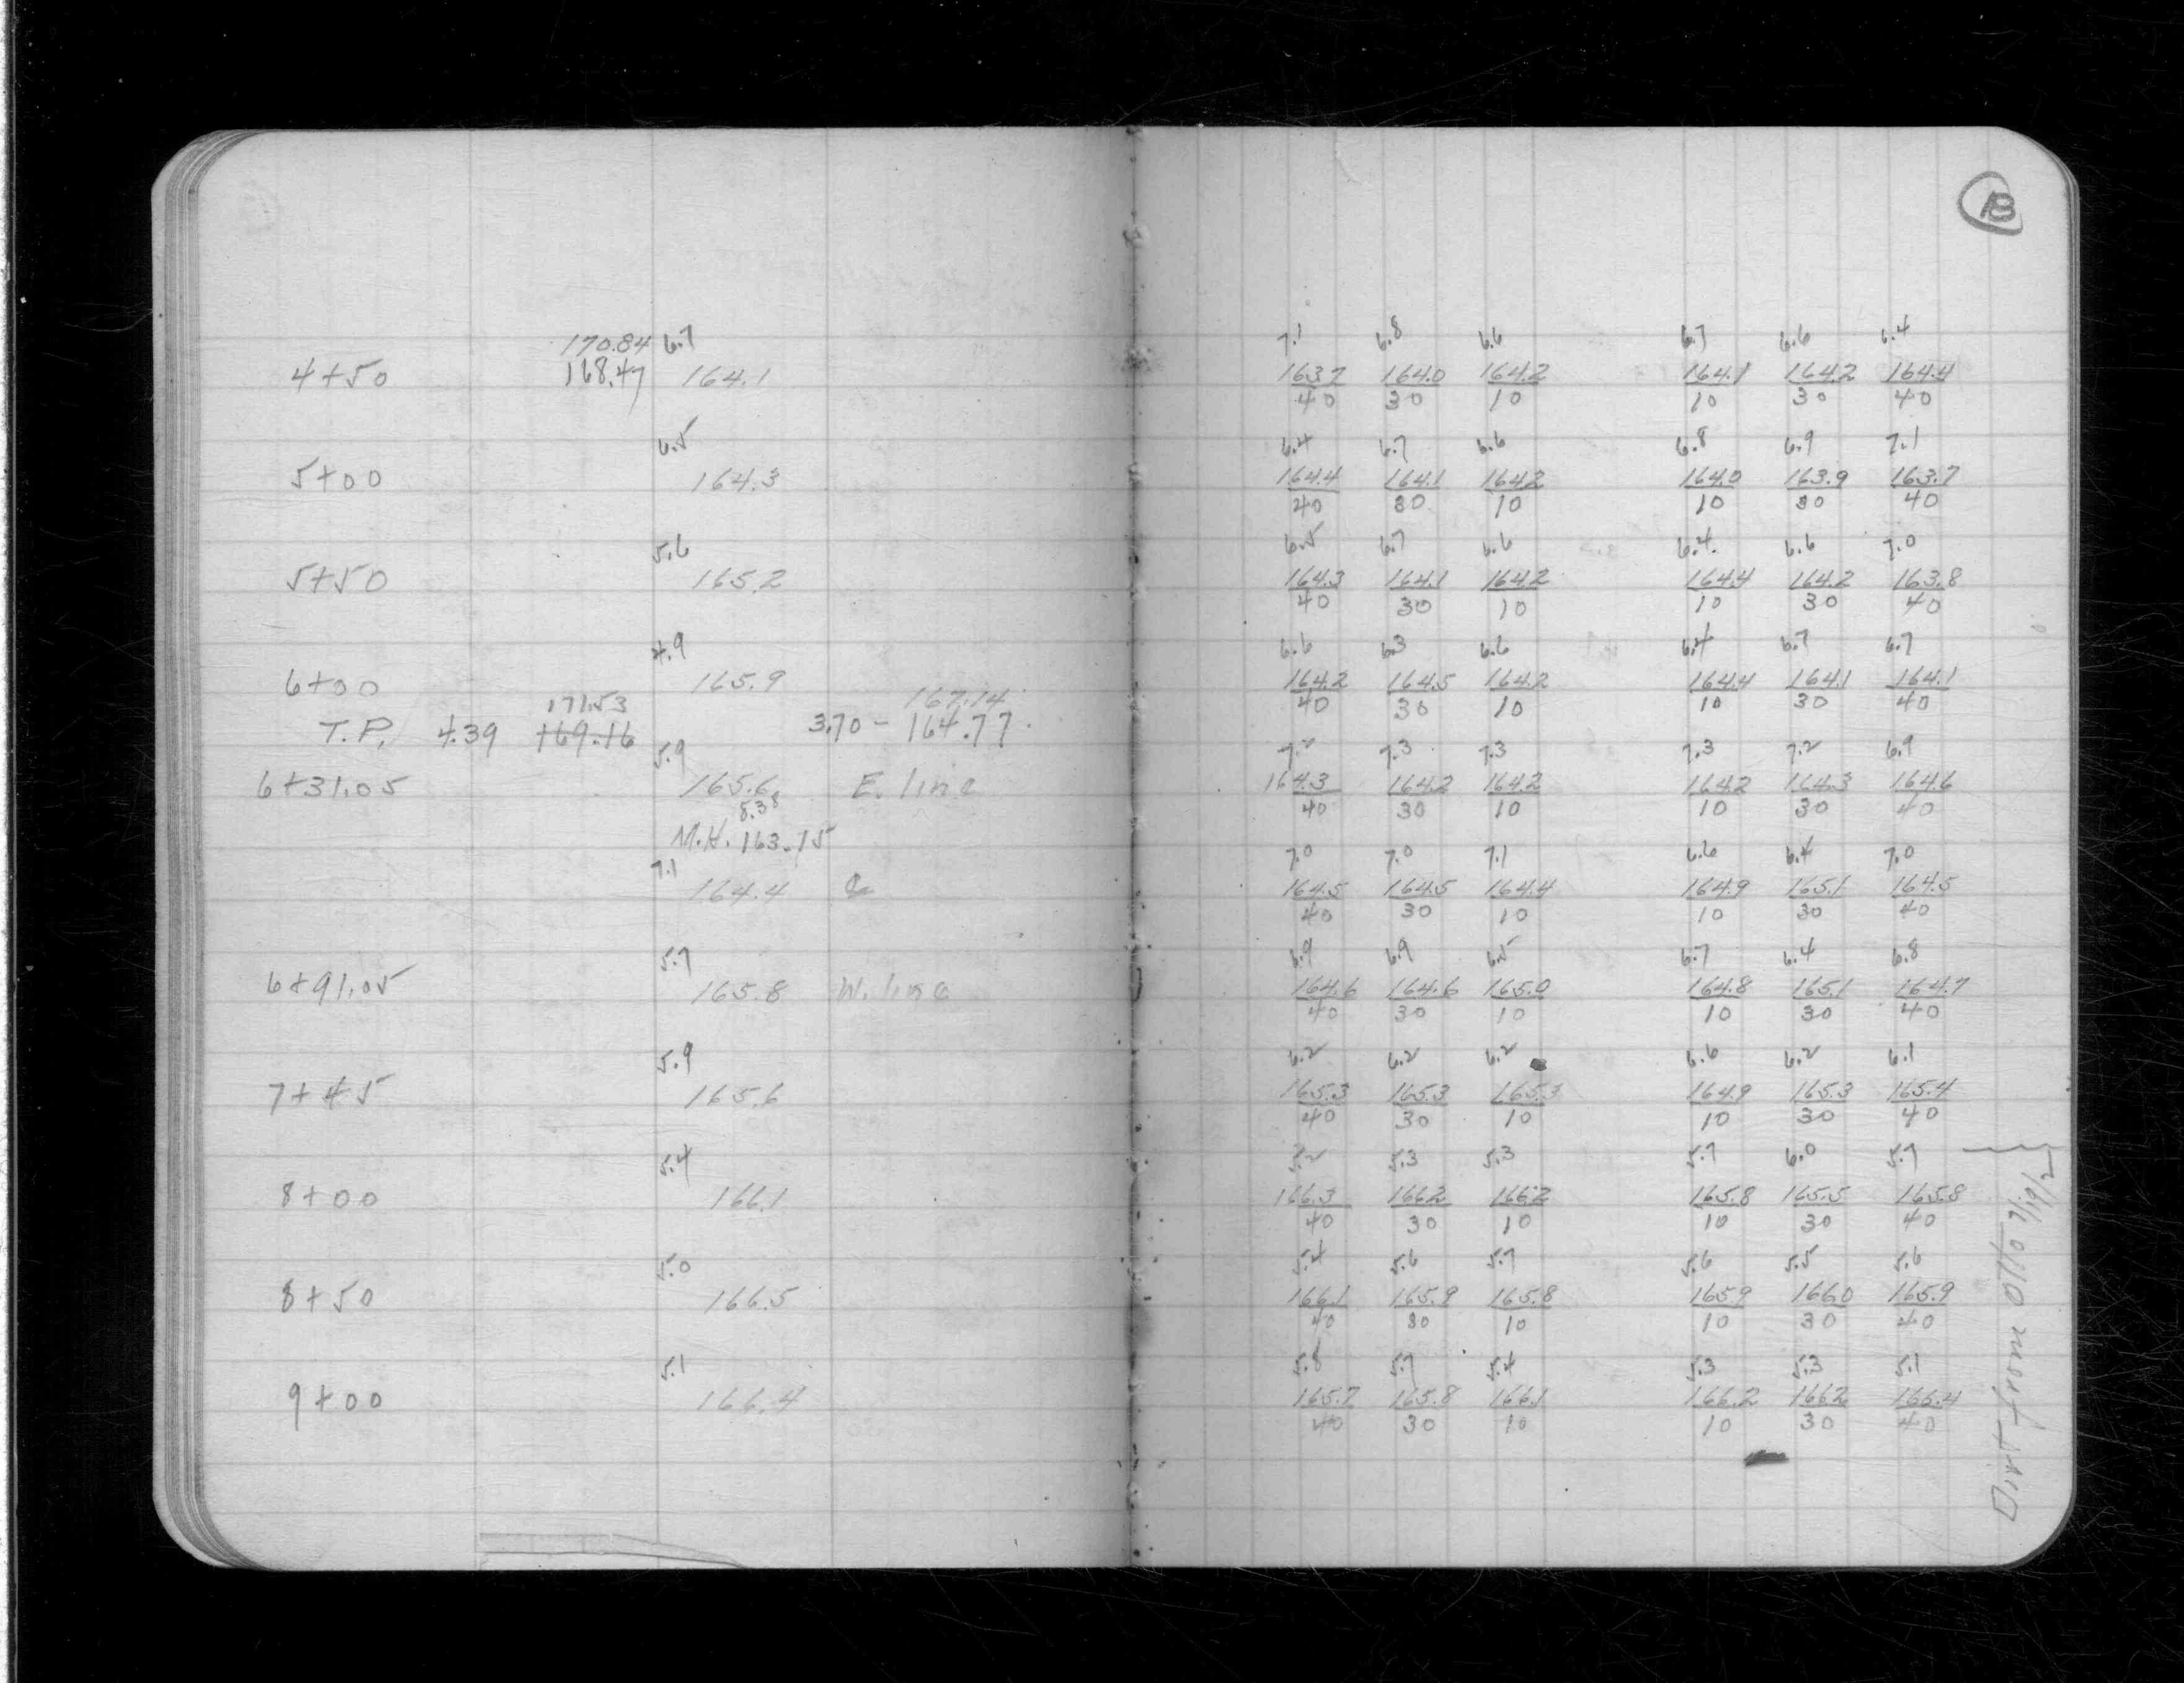 18
170.84 6.7 7.1 6.8 6.6 6.7 6.6 6.4
4+50 168.47 164.1 163.7 164.0 164.2 164.1 164.2 164.4
40 30 10 10 30 40
6.5 6.4 6.7 6.6 6.8 6.9 7.1
5+00 164.3 164.4 164.1 164.2 164.0 163.9 163.7
40 30 10 10 30 40
5.6 6.5 6.7 6.6 6.4 6.6 7.0
5+50 165.2 164.3 164.1 164.2 164.4 164.2 163.8
40 30 10 10 30 40
4.9 6.6 6.3 6.6 6.4 6.7 6.7
6+00 165.9 164.2 164.5 164.2 164.4 164.1 164.1
171.53 167.14 40 30 10 10 30 40
T.P. 4.39 169.16 3.70 - 164.77
5.9 7.2 7.3 7.3 7.3 7.2 6.9
6+31.05 165.6 E. line 164.3 164.2 164.2 164.2 164.3 164.6
8.38 40 30 10 10 30 40
M.H. 163.15
7.1 7.0 7.0 7.1 6.6 6.4 7.0
164.4 ℄ 164.5 164.5 164.4 164.9 165.1 164.5
40 30 10 10 30 40
5.7 6.9 6.9 6.5 6.7 6.4 6.8
6+91.05 165.8 W. line 164.6 164.6 165.0 164.8 165.1 164.7
40 30 10 10 30 40
5.9 6.2 6.2 6.2 6.6 6.2 6.1
7+45 165.6 165.3 165.3 165.3 164.9 165.3 165.4
40 30 10 10 30 40
5.4 5.2 5.3 5.3 5.7 6.0 5.7
8+00 166.1 166.3 166.2 166.2 165.8 165.5 165.8
40 30 10 10 30 40
5.0 5.4 5.6 5.7 5.6 5.5 5.6
8+50 166.5 166.1 165.9 165.8 165.9 166.0 165.9
40 30 10 10 30 40
5.1 5.8 5.7 5.4 5.3 5.3 5.1
9+00 166.4 165.7 165.8 166.1 166.2 166.2 166.4
40 30 10 10 30 40
Dirt from Otto